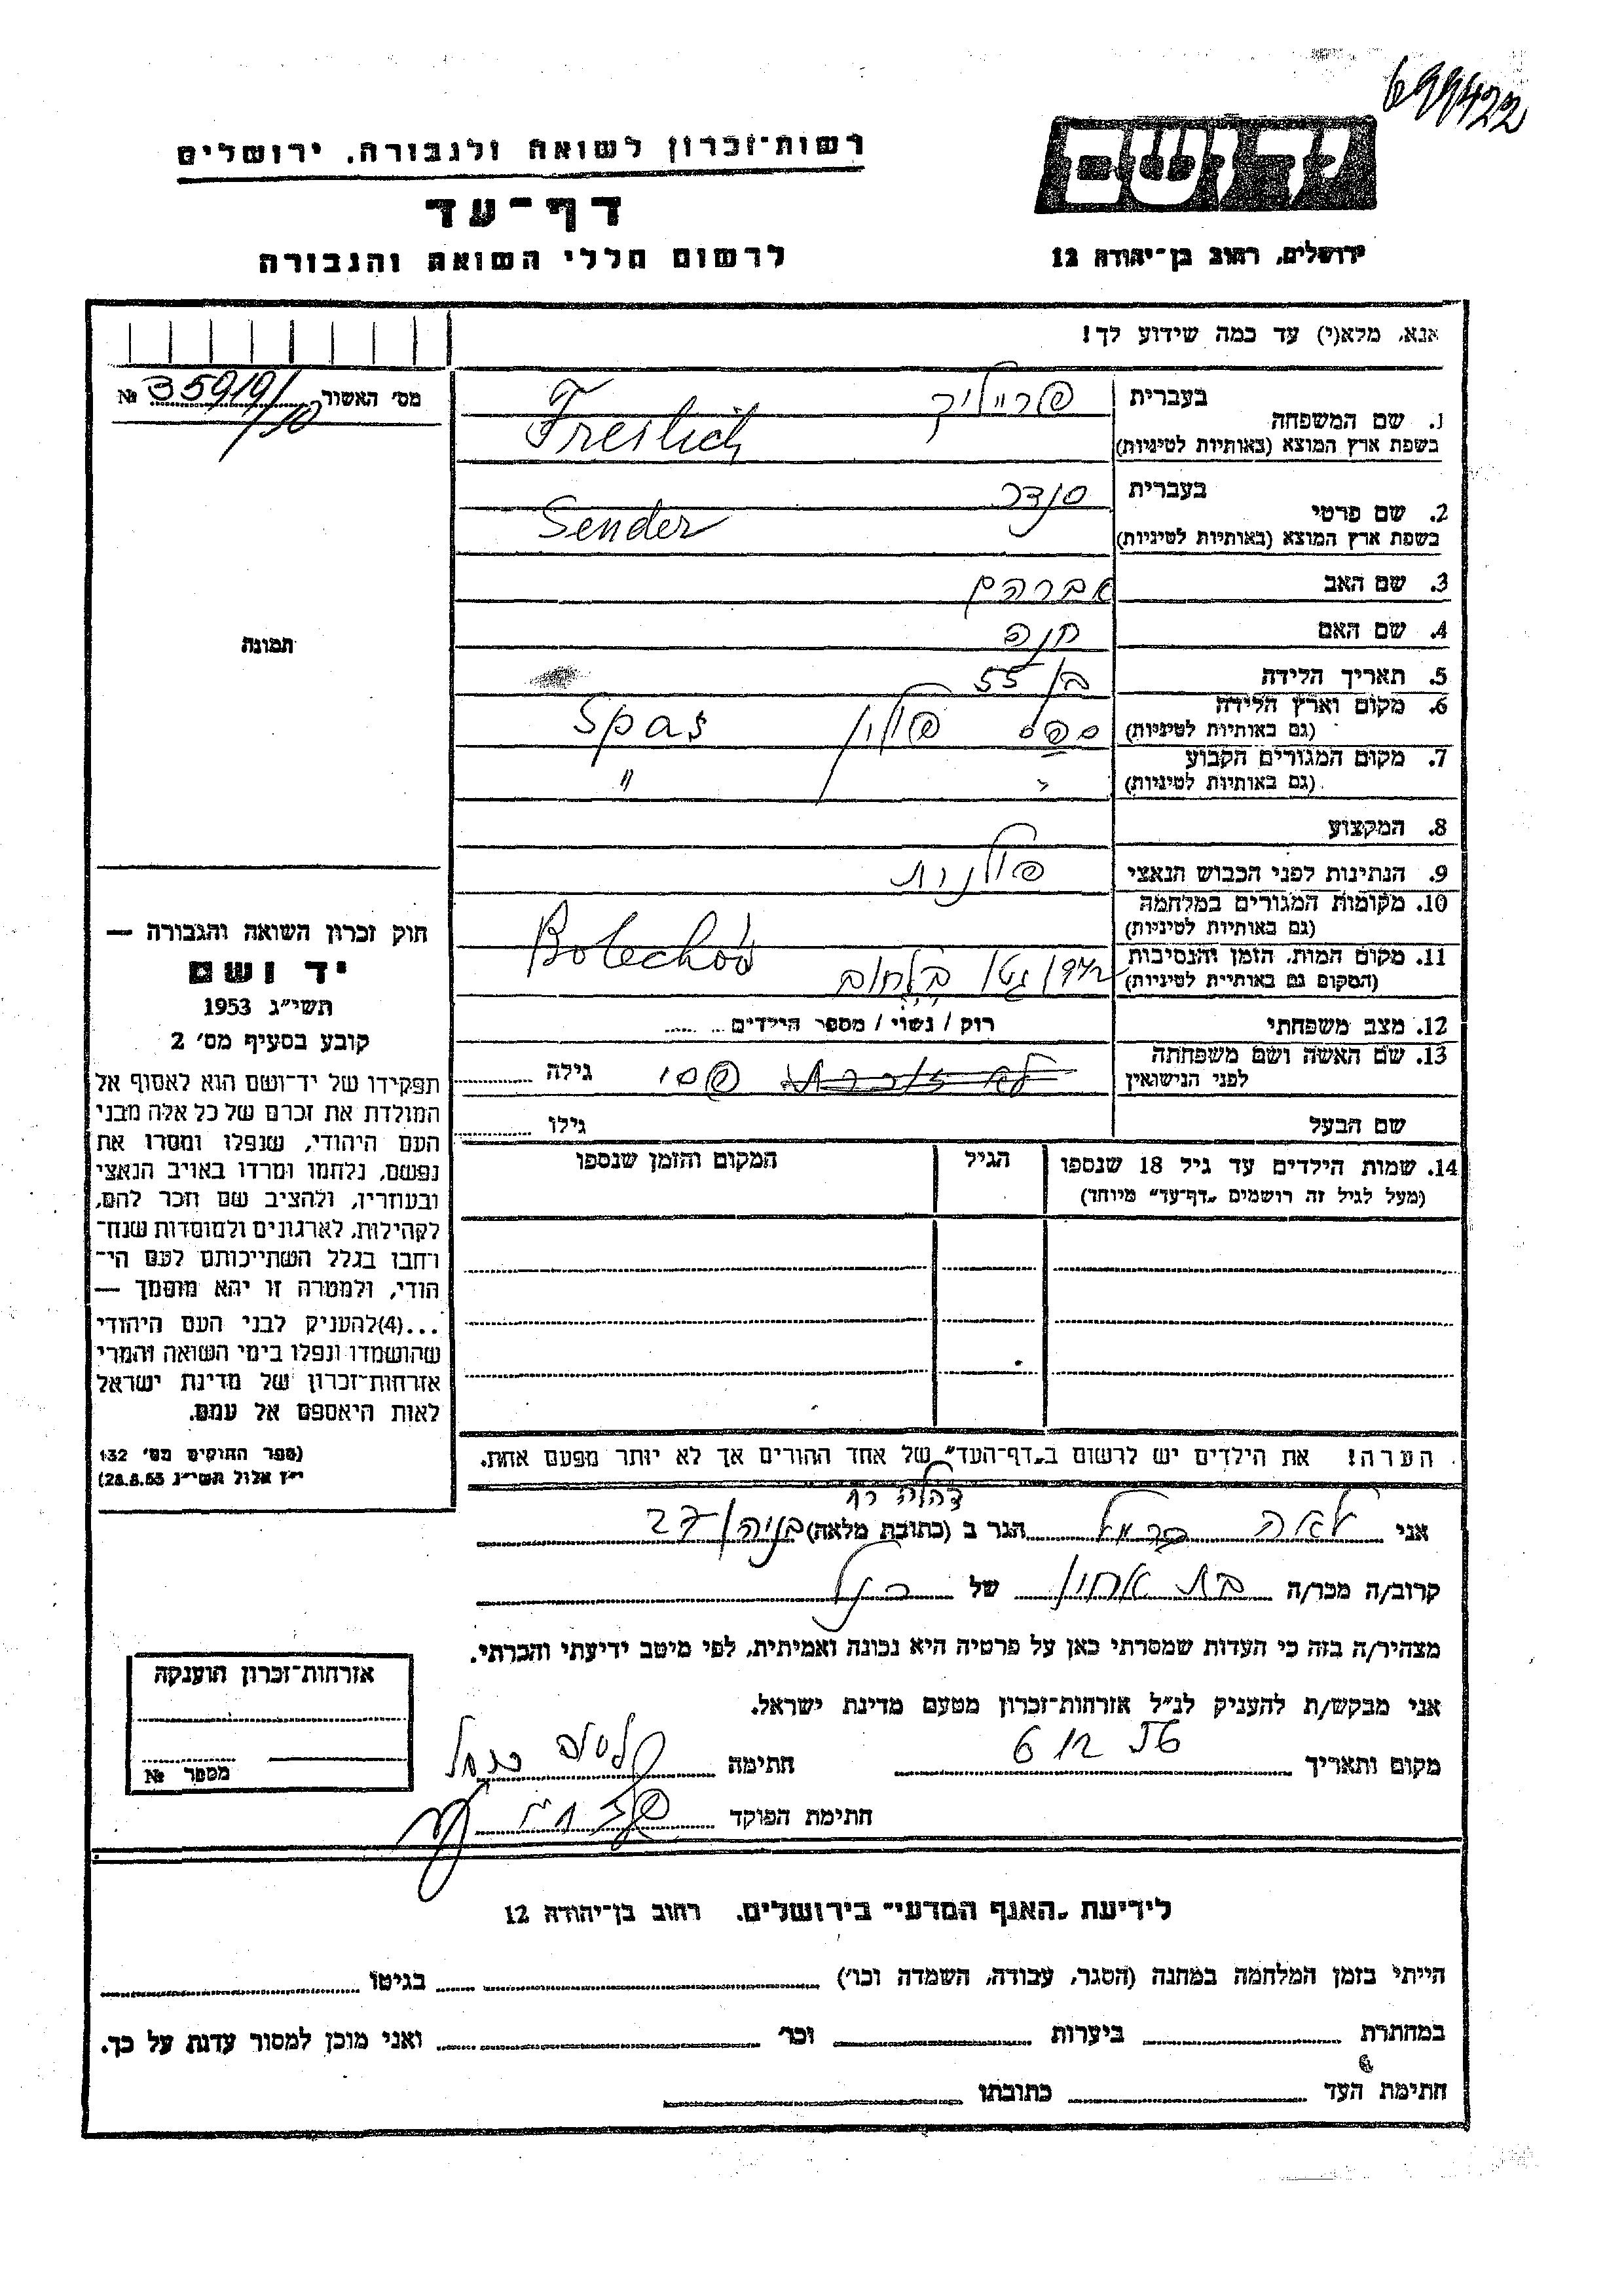 699422
יד ושם
רשות-זכרון לשואה ולגבורה, ירושלים
דף-עד
לרשום חללי השואה והגבורה
ירושלים, רחוב בן-יהודה 12
אנא, מלא(י) עד כמה שידוע לך!
מס' האשור № 35919/10
1. שם המשפחה
בעברית פרייליך
בשפת ארץ המוצא (באותיות לטיניות) Freilich
2. שם פרטי
בעברית סנדר
בשפת ארץ המוצא (באותיות לטיניות) Sender
3. שם האב אברהם
4. שם האם חנה
5. תאריך הלידה בן 55
6. מקום וארץ הלידה
(גם באותיות לטיניות) ספס פולין Spas
7. מקום המגורים הקבוע
(גם באותיות לטיניות) " "
8. המקצוע
9. הנתינות לפני הכבוש הנאצי פולנית
10. מקומות המגורים במלחמה
(גם באותיות לטיניות)
11. מקום המות, הזמן והנסיבות
(המקום גם באותיות לטיניות) 1942 גטו בולחוב Bolechów
12. מצב משפחתי רוק / נשוי / מספר הילדים
13. שם האשה ושם משפחתה
לפני הנישואין פסי גילה
שם הבעל גילו
14. שמות הילדים עד גיל 18 שנספו הגיל המקום והזמן שנספו
(מעל לגיל זה רושמים "דף-עד" מיוחד)
הערה! את הילדים יש לרשום ב"דף-העד" של אחד ההורים אך לא יותר מפעם אחת.
תמונה
חוק זכרון השואה והגבורה —
יד ושם
תשי"ג 1953
קובע בסעיף מס' 2
תפקידו של יד-ושם הוא לאסוף אל
המולדת את זכרם של כל אלה מבני
העם היהודי, שנפלו ומסרו את
נפשם, נלחמו ומרדו באויב הנאצי
ובעוזריו, ולהציב שם וזכר להם,
לקהילות, לארגונים ולמוסדות שנח-
רחבו בגלל השתייכותם לעם הי-
הודי, ולמטרה זו יהא מוסמך —
...(4)להעניק לבני העם היהודי
שהושמדו ונפלו בימי השואה והמרי
אזרחות-זכרון של מדינת ישראל
לאות היאספם אל עמם.
(ספר החוקים מס' 132
י"ז אלול תשי"ג 28.8.53)
אני לאה כרמל הגר ב (כתובת מלאה) 27
קרוב/ה מכר/ה בת אחיו של הנ"ל
מצהיר/ה בזה כי העדות שמסרתי כאן על פרטיה היא נכונה ואמיתית, לפי מיטב ידיעתי והכרתי.
אני מבקש/ת להעניק לנ"ל אזרחות-זכרון מטעם מדינת ישראל.
מקום ותאריך 6 12 56 חתימה
חתימת הפוקד
אזרחות-זכרון הוענקה
מספר №
לידיעת "האגף המדעי" בירושלים, רחוב בן-יהודה 12
הייתי בזמן המלחמה במחנה (הסגר, עבודה, השמדה וכו') בגיטו
במחתרת ביערות וכו' ואני מוכן למסור עדות על כך.
חתימת העד כתובתו